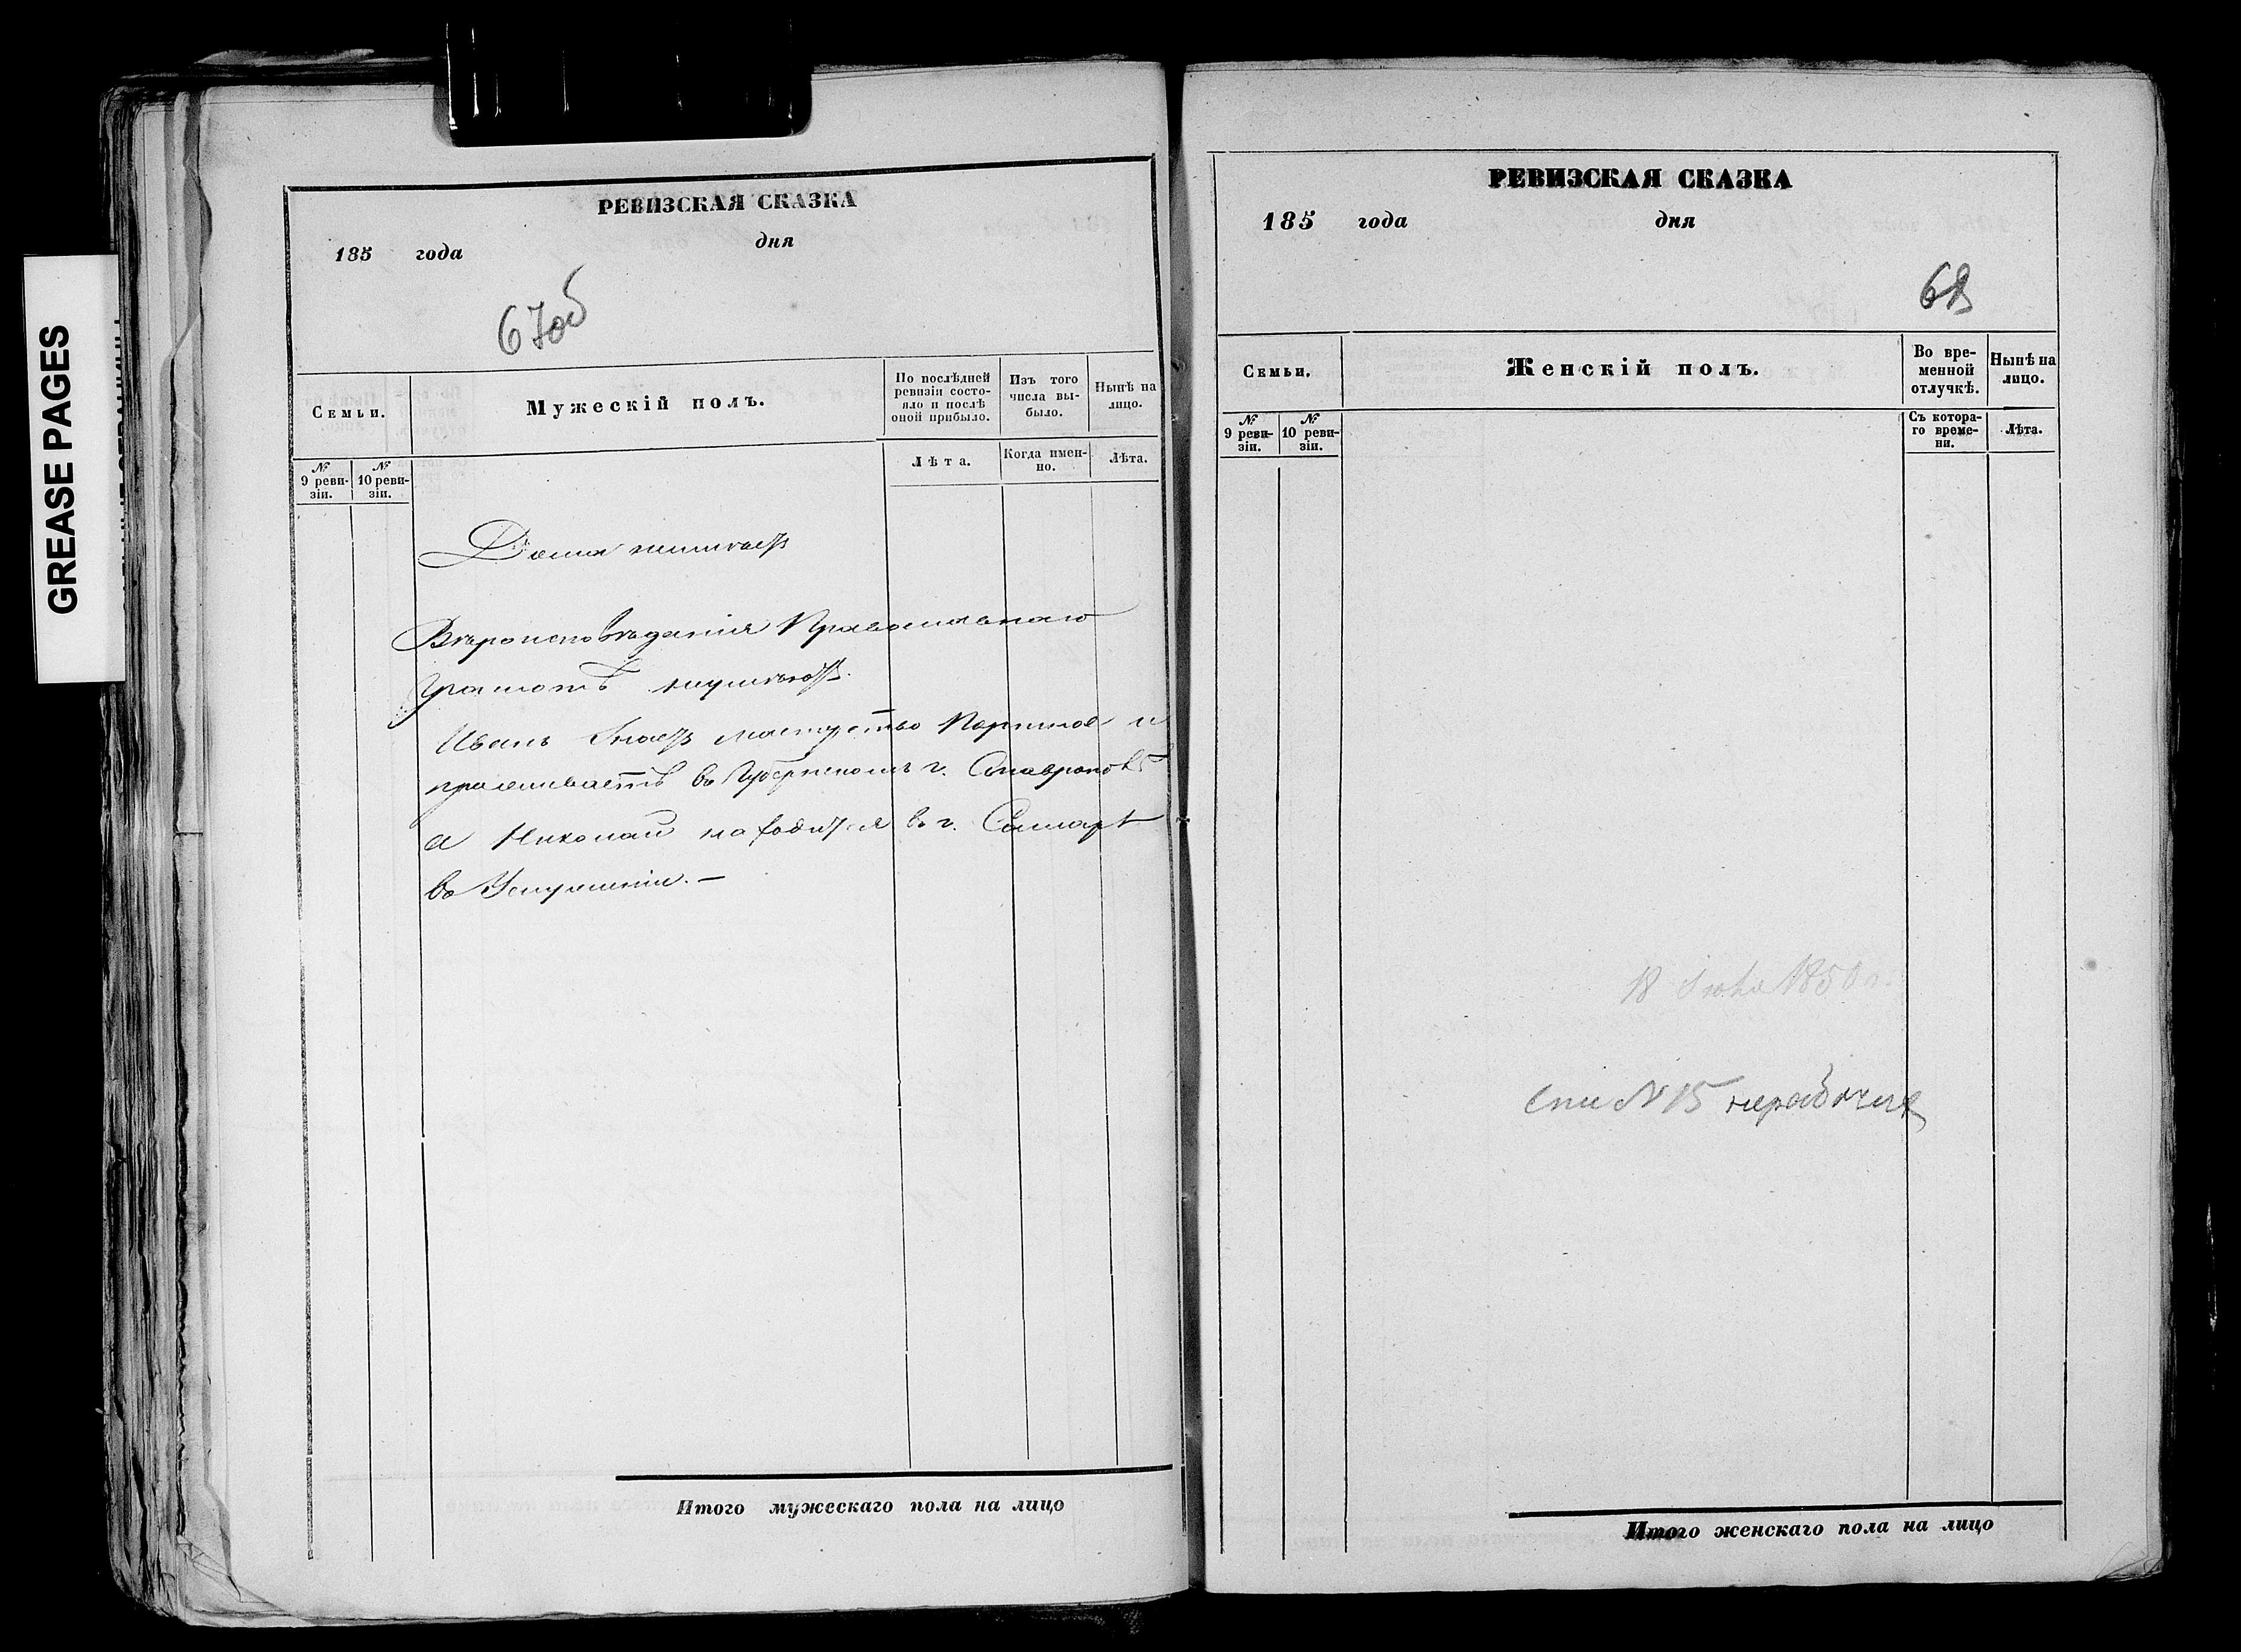 GREASE PAGES
РЕВИЗСКАЯ СКАЗКА
185 года дня
67об
Семьи.
Мужескій полъ.
По послѣдней ревизіи состояло и послѣ оной прибыло.
Изъ того числа выбыло.
Нынѣ на лицо.
№ 9 ревизіи.
№ 10 ревизіи.
Лѣта.
Когда именно.
Лѣта.
Дома неимѣетъ
Вѣроисповѣданія Православнаго
Грамотѣ неумѣютъ.
Иванъ Знаетъ мастерство Портное и
проживаетъ въ Губернскомъ г. Ставрополѣ
а Николай находится въ г. Самарѣ
въ Услуженіи. —
Итого мужескаго пола на лицо
РЕВИЗСКАЯ СКАЗКА
185 года дня
68
Семьи.
Женскій полъ.
Во временной отлучкѣ.
Нынѣ на лицо.
№ 9 ревизіи.
№ 10 ревизіи.
Съ котораго времени.
Лѣта.
18 1850 г.
№ 15
Итого женскаго пола на лицо